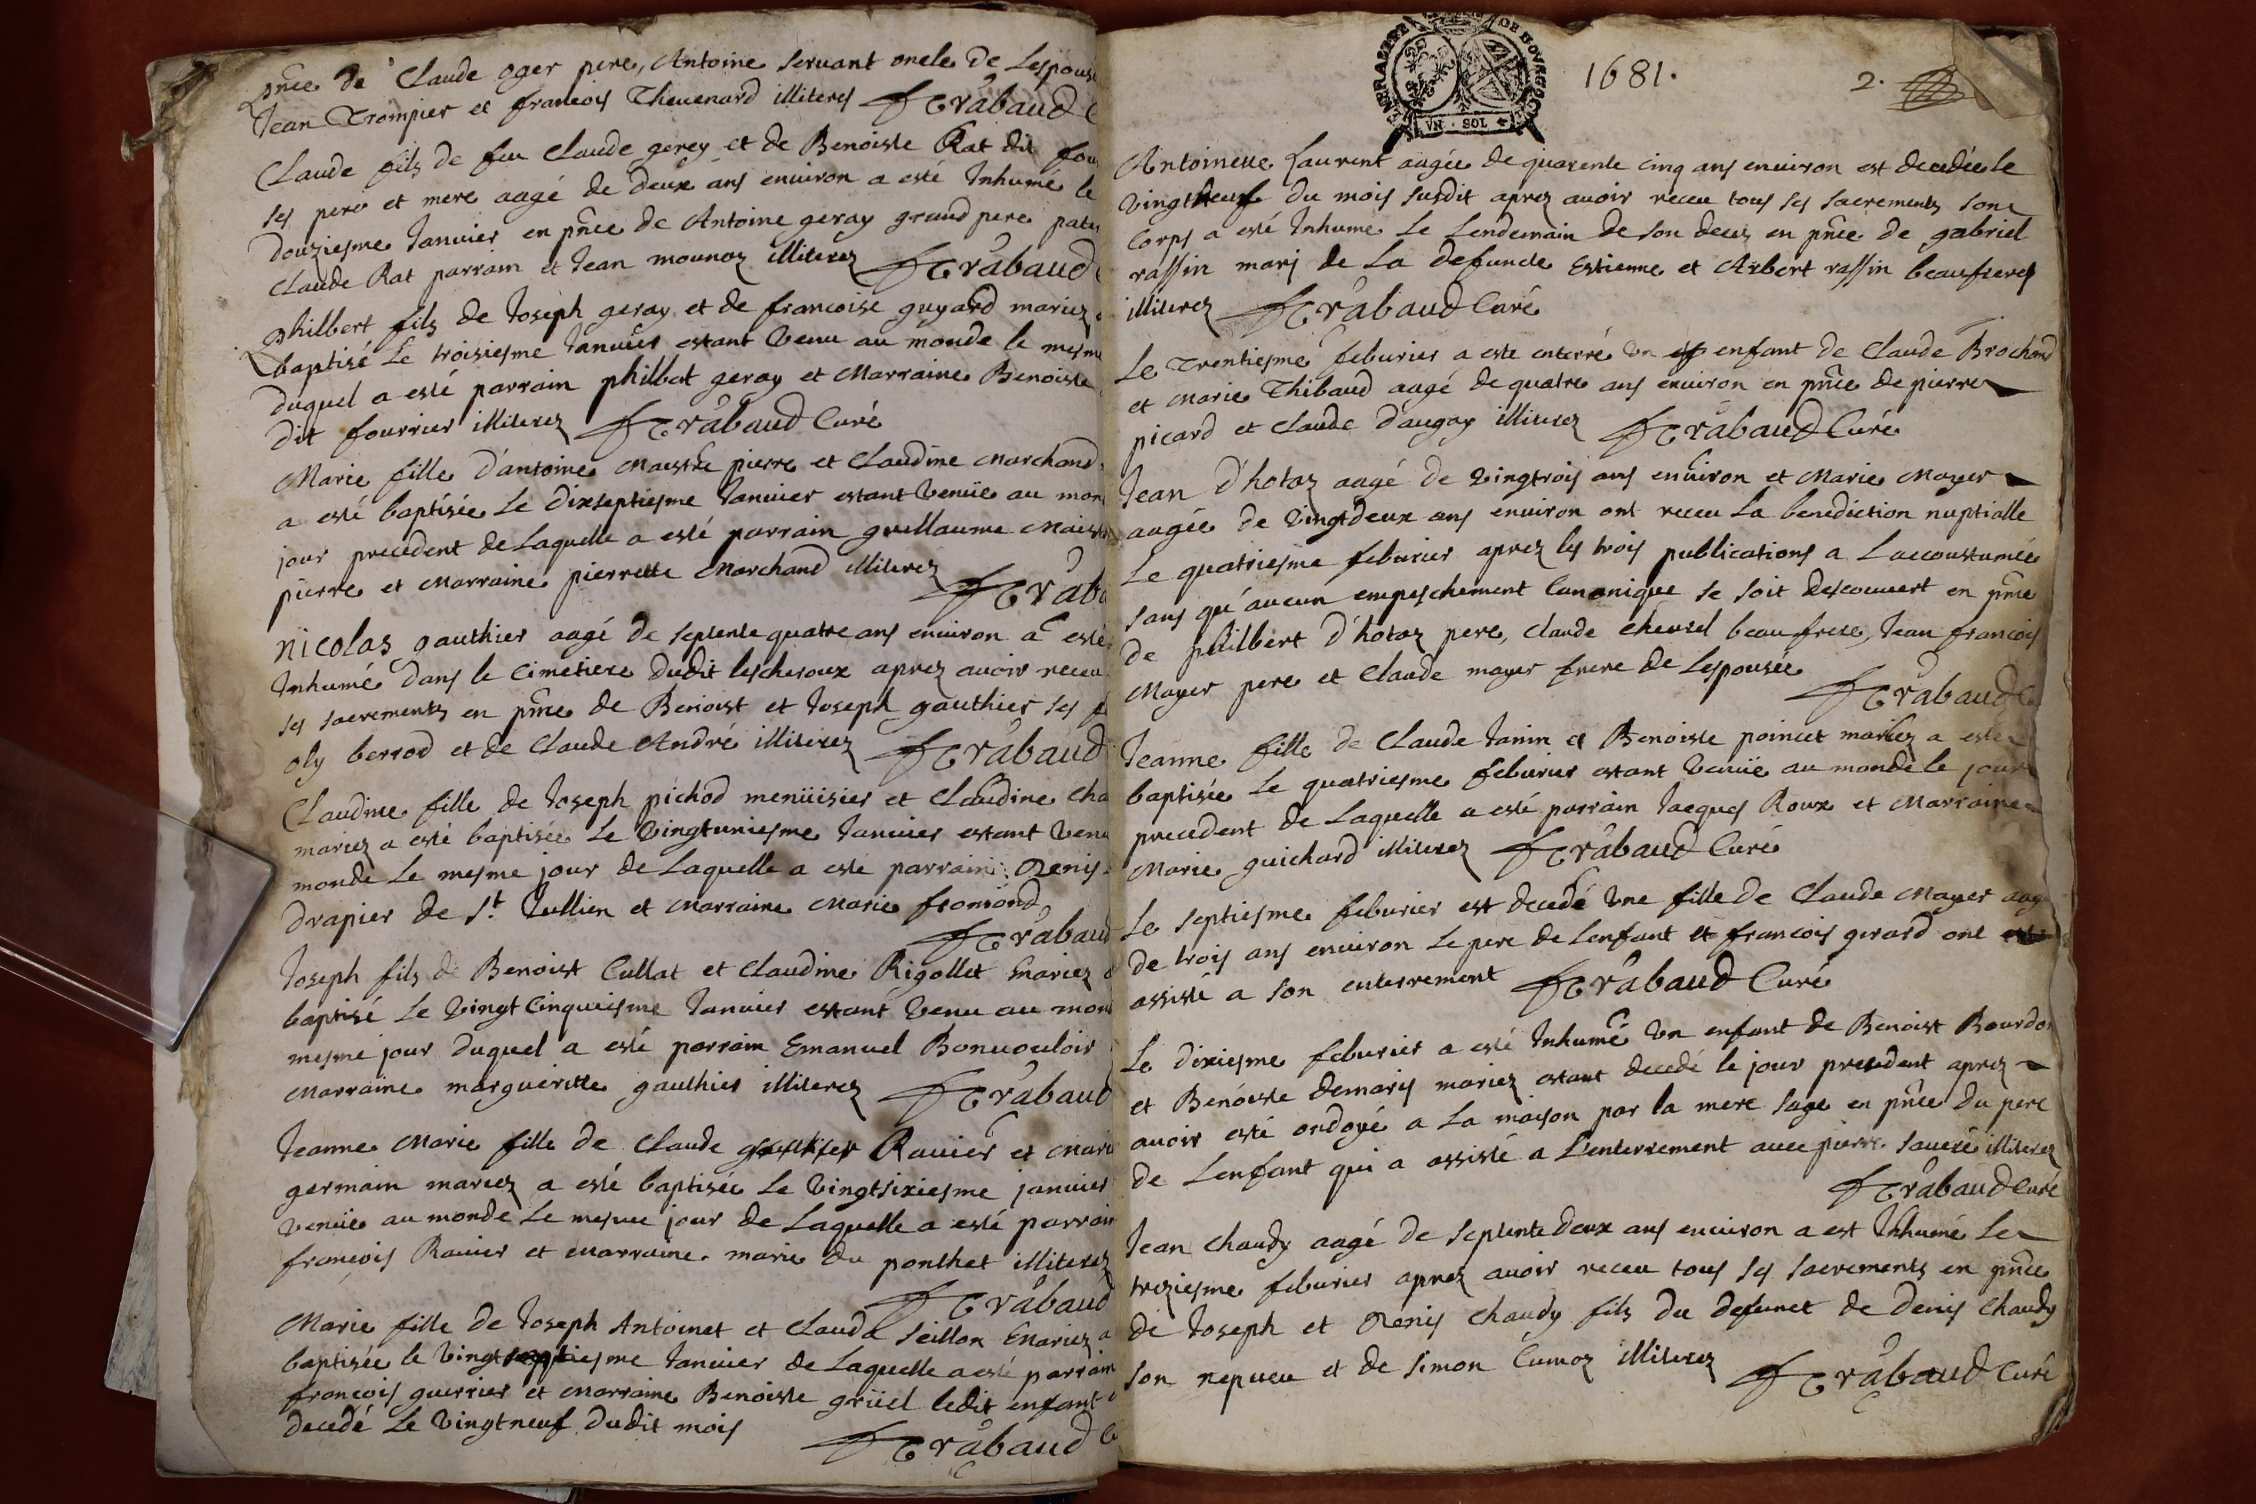 pñce de Claude oger pere, Antoine seruant oncle de Lespouse
Jean Trompier et francois Theuenard illiterés Trabaud C
Claude filz de feu Claude gerey et de Benoiste Rat dit fou
ses pere et mere aagé de deux ans enuiron a esté Inhumé le
douziesme Januier en pñce de Antoine geray grand pere pate
Claude Rat parrain et Jean mounoz illiterez Trabaud
philbert filz de Joseph geray et de francoise guyard mariez
baptisé Le troisiesme Januier estant Venu au monde le mesme
duquel a esté parrain philbert geray et Marraine Benoiste
dit fourrier illiterez Trabaud Curé
Marie fille d'antoine Maistre pierre et Claudine Marchand
a esté baptisée Le dixseptiesme Januier estant Venüe au mon
jour precedent de Laquelle a esté parrain guillaume Maistre
pierre et Marraine pierrette Marchand illiterez
Traba
Nicolas gauthier aagé de septente quatre ans enuiron a esté
Inhumé dans le Cimetiere dudit lescheroux aprez auoir receu
ses sacrements en pñce de Benoist et Joseph gauthier ses f
oly berrod et de Claude André illiterez Trabaud
Claudine fille de Joseph pichod menüisier et Claudine Cha
mariez a esté baptisée Le Vingtuniesme Januier estant Venu
monde Le mesme jour de Laquelle a esté parrain Denis
drapier de St. Jullien et Marraine Marie fromond
Trabaud
Joseph filz de Benoist Cullat et Claudine Rigollet Mariez a
baptisé Le Vingt Cinquiesme Januier estant Venu au mon
mesme jour duquel a esté parrain Emanuel Bonuouloir
Marraine margueritte gauthier illiterez Trabaud
Jeanne Marie fille de Claude gauthier Rauier et Marie
germain mariez a esté baptisée Le Vingtsixiesme januier
Venüe au monde Le mesme jour de Laquelle a esté parrain
francois Rauier et Marraine marie du ponthet illiterez
Trabaud
Marie fille de Joseph Antoinet et Clauda Seillon Mariez a
baptisée le Vingtseptiesme Januier de Laquelle a esté parrain
francois guerrier et Marraine Benoiste grüel ledit enfant
decedé Le Vingtneuf dudit mois
Trabaud C
VN · SOL
1681.
2.
Antoinette Laurent aagée de quarente cinq ans enuiron est decedée le
Vingtneuf du mois susdit aprez auoir receu tous ses sacrements son
Corps a esté Inhumé Le Lendemain de son decez en pñce de gabriel
raffin marj de La defuncte Estienne et Arbert raffin beaufreres
illiterez Trabaud Curé
Le Trentiesme feburier a este enterré Vn enfant de Claude Brochand
et Marie Thibaud aagé de quatre ans enuiron en pñce de pierre
picard et Claude daugay illiterez Trabaud Curé
Jean d'hotaz aagé de Vingtrois ans enuiron et Marie Mayer
aagée de Vingtdeux ans enuiron ont receu La benediction nuptialle
Le quatriesme feburier aprez les trois publications a Laccoustumée
sans qu'aucun empeschement Canonique se soit descouuert en pñce
de philbert d'hotaz pere, Claude cheurel beaufrere, Jean francois
Mayer pere et Claude mayer frere de Lespousée
Trabaud C
Jeanne fille de Claude Janin et Benoiste poincet mariez a esté
baptisée Le quatriesme feburier estant Venüe au monde le jour
precedent de Laquelle a esté parrain Jacques Roux et Marraine
Marie guichard illiterez Trabaud Curé
Le septiesme feburier est decedé Vne fille de Claude Mayer aag
de trois ans enuiron Le pere de Lenfant et francois girard ont
assisté a son enterrement Trabaud Curé
Le dixiesme feburier a esté Inhumé Vn enfant de Benoist Bourdon
et Benoiste demaris mariez estant decedé le jour precedent aprez
auoir esté ondoyé a La maison par la mere sage en pñce du pere
de Lenfant qui a assisté a L'enterrement auec pierre sauerè illiterez
Trabaud Curé
Jean Chaudy aagé de septente deux ans enuiron a est Inhumé Le
treziesme feburier aprez auoir receu tous ses sacrements en pñce
de Joseph et Denis Chaudy filz du defunct de Denis Chaudy
son nepueu et de Simon Cumoz illiterez Trabaud Curé